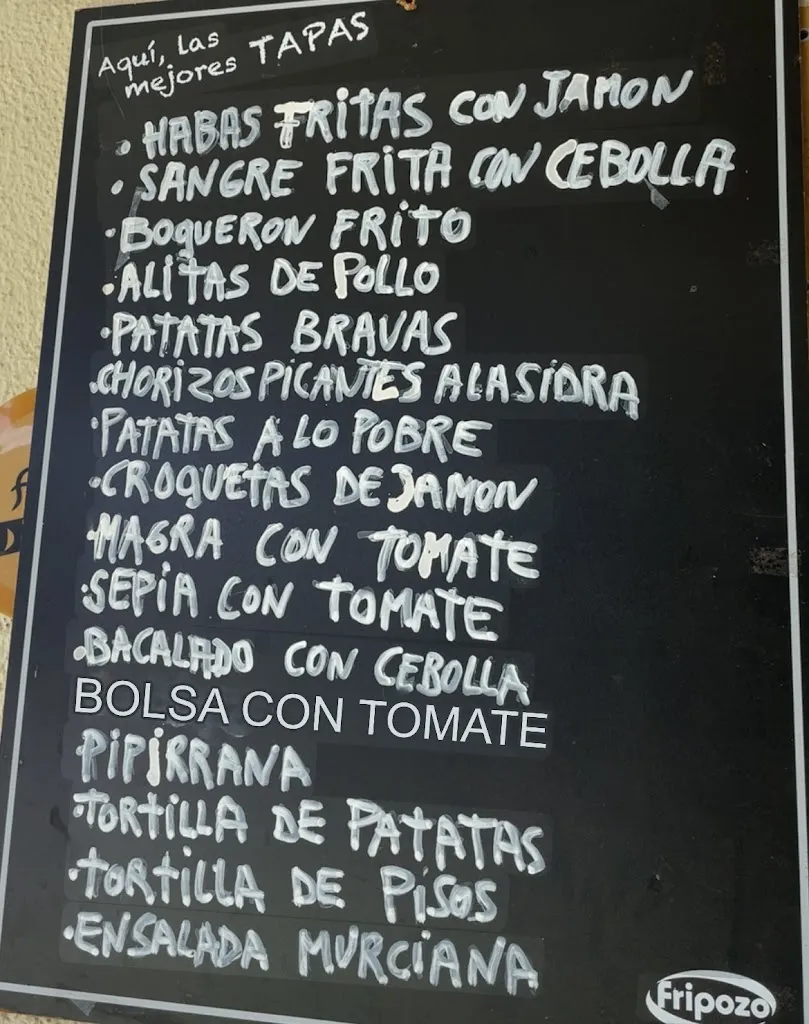 Aquí, las
mejores TAPAS
· HABAS FRITAS CON JAMON
· SANGRE FRITA CON CEBOLLA
· BOQUERON FRITO
· ALITAS DE POLLO
· PATATAS BRAVAS
· CHORIZOS PICANTES A LA SIDRA
· PATATAS A LO POBRE
· CROQUETAS DE JAMON
· MAGRA CON TOMATE
· SEPIA CON TOMATE
· BACALADO CON CEBOLLA
BOLSA CON TOMATE
PIPIRRANA
· TORTILLA DE PATATAS
· TORTILLA DE PISOS
· ENSALADA MURCIANA
Fripozo